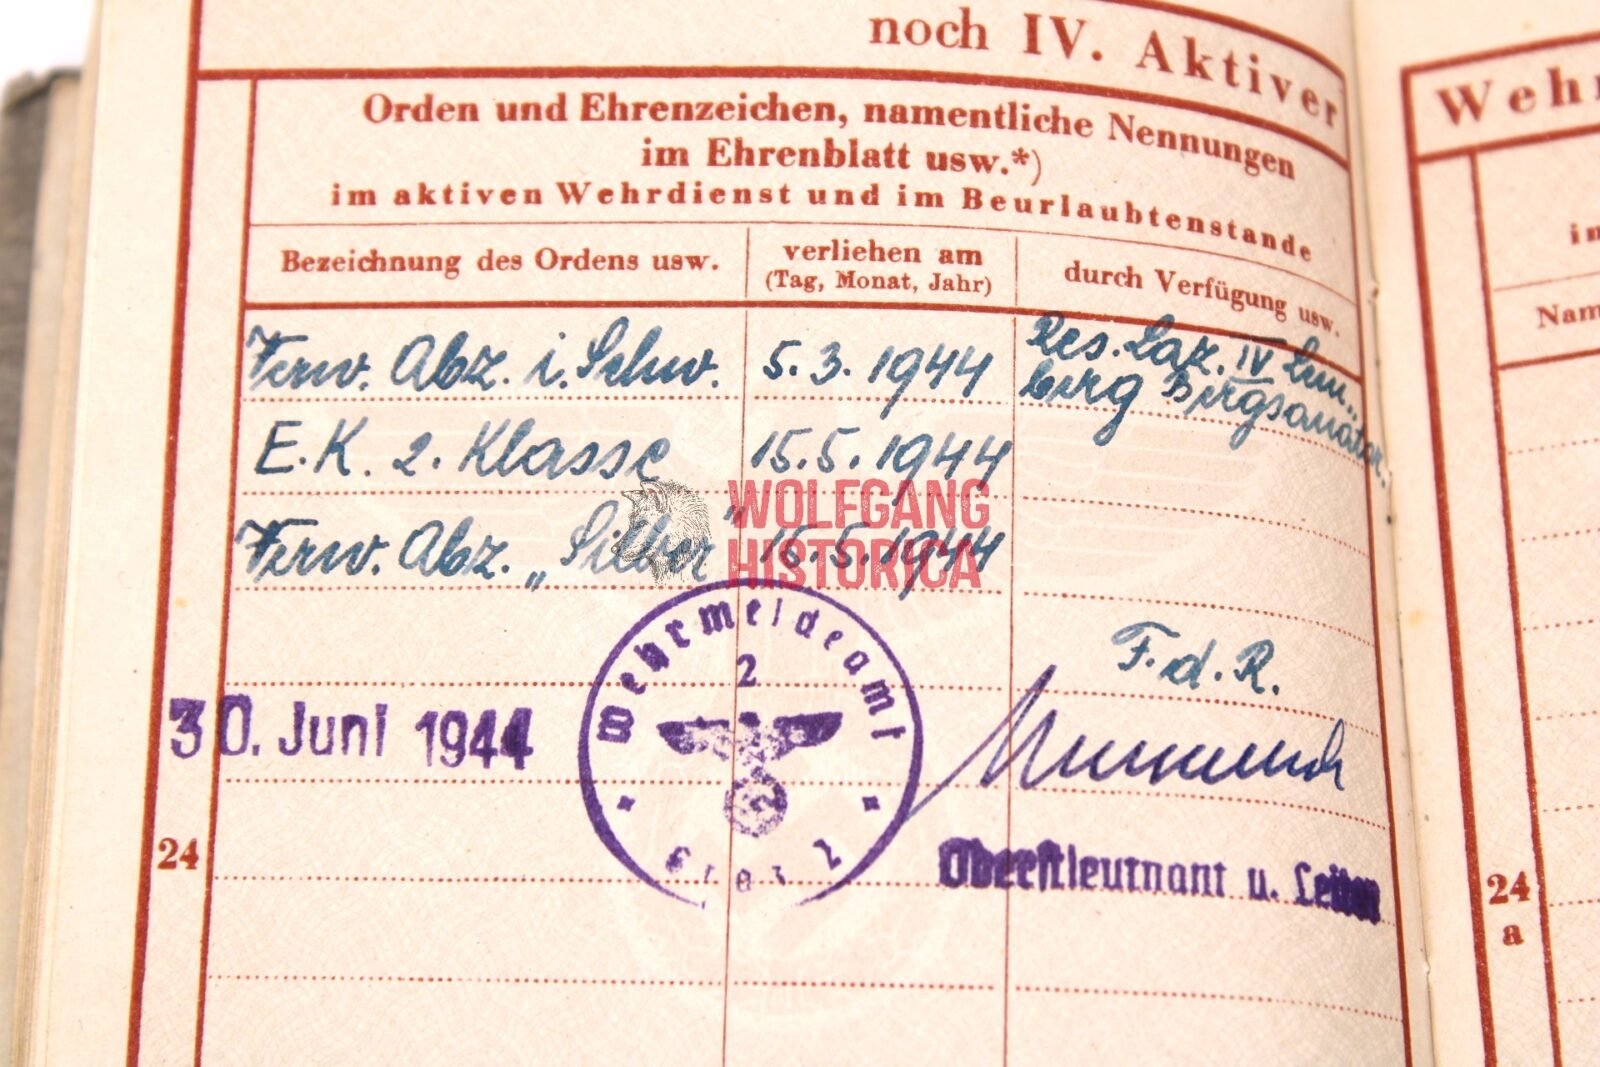 noch IV. Aktiver
Orden und Ehrenzeichen, namentliche Nennungen
im Ehrenblatt usw.*)
im aktiven Wehrdienst und im Beurlaubtenstande
Bezeichnung des Ordens usw.
verliehen am
(Tag, Monat, Jahr)
durch Verfügung usw.
Verw. Abz. i. Schw. 5.3.1944 Res. Laz. IV
berg Bergsanator.
E.K. 2. Klasse 15.5.1944
Verw. Abz. „Silber" 15.5.1944
WOLFGANG
HISTORICA
F. d. R.
Wehrmeldeamt
2
Graz
30. Juni 1944
Oberstleutnant u. Leiter
24
Wehr
in
Nam
24
a